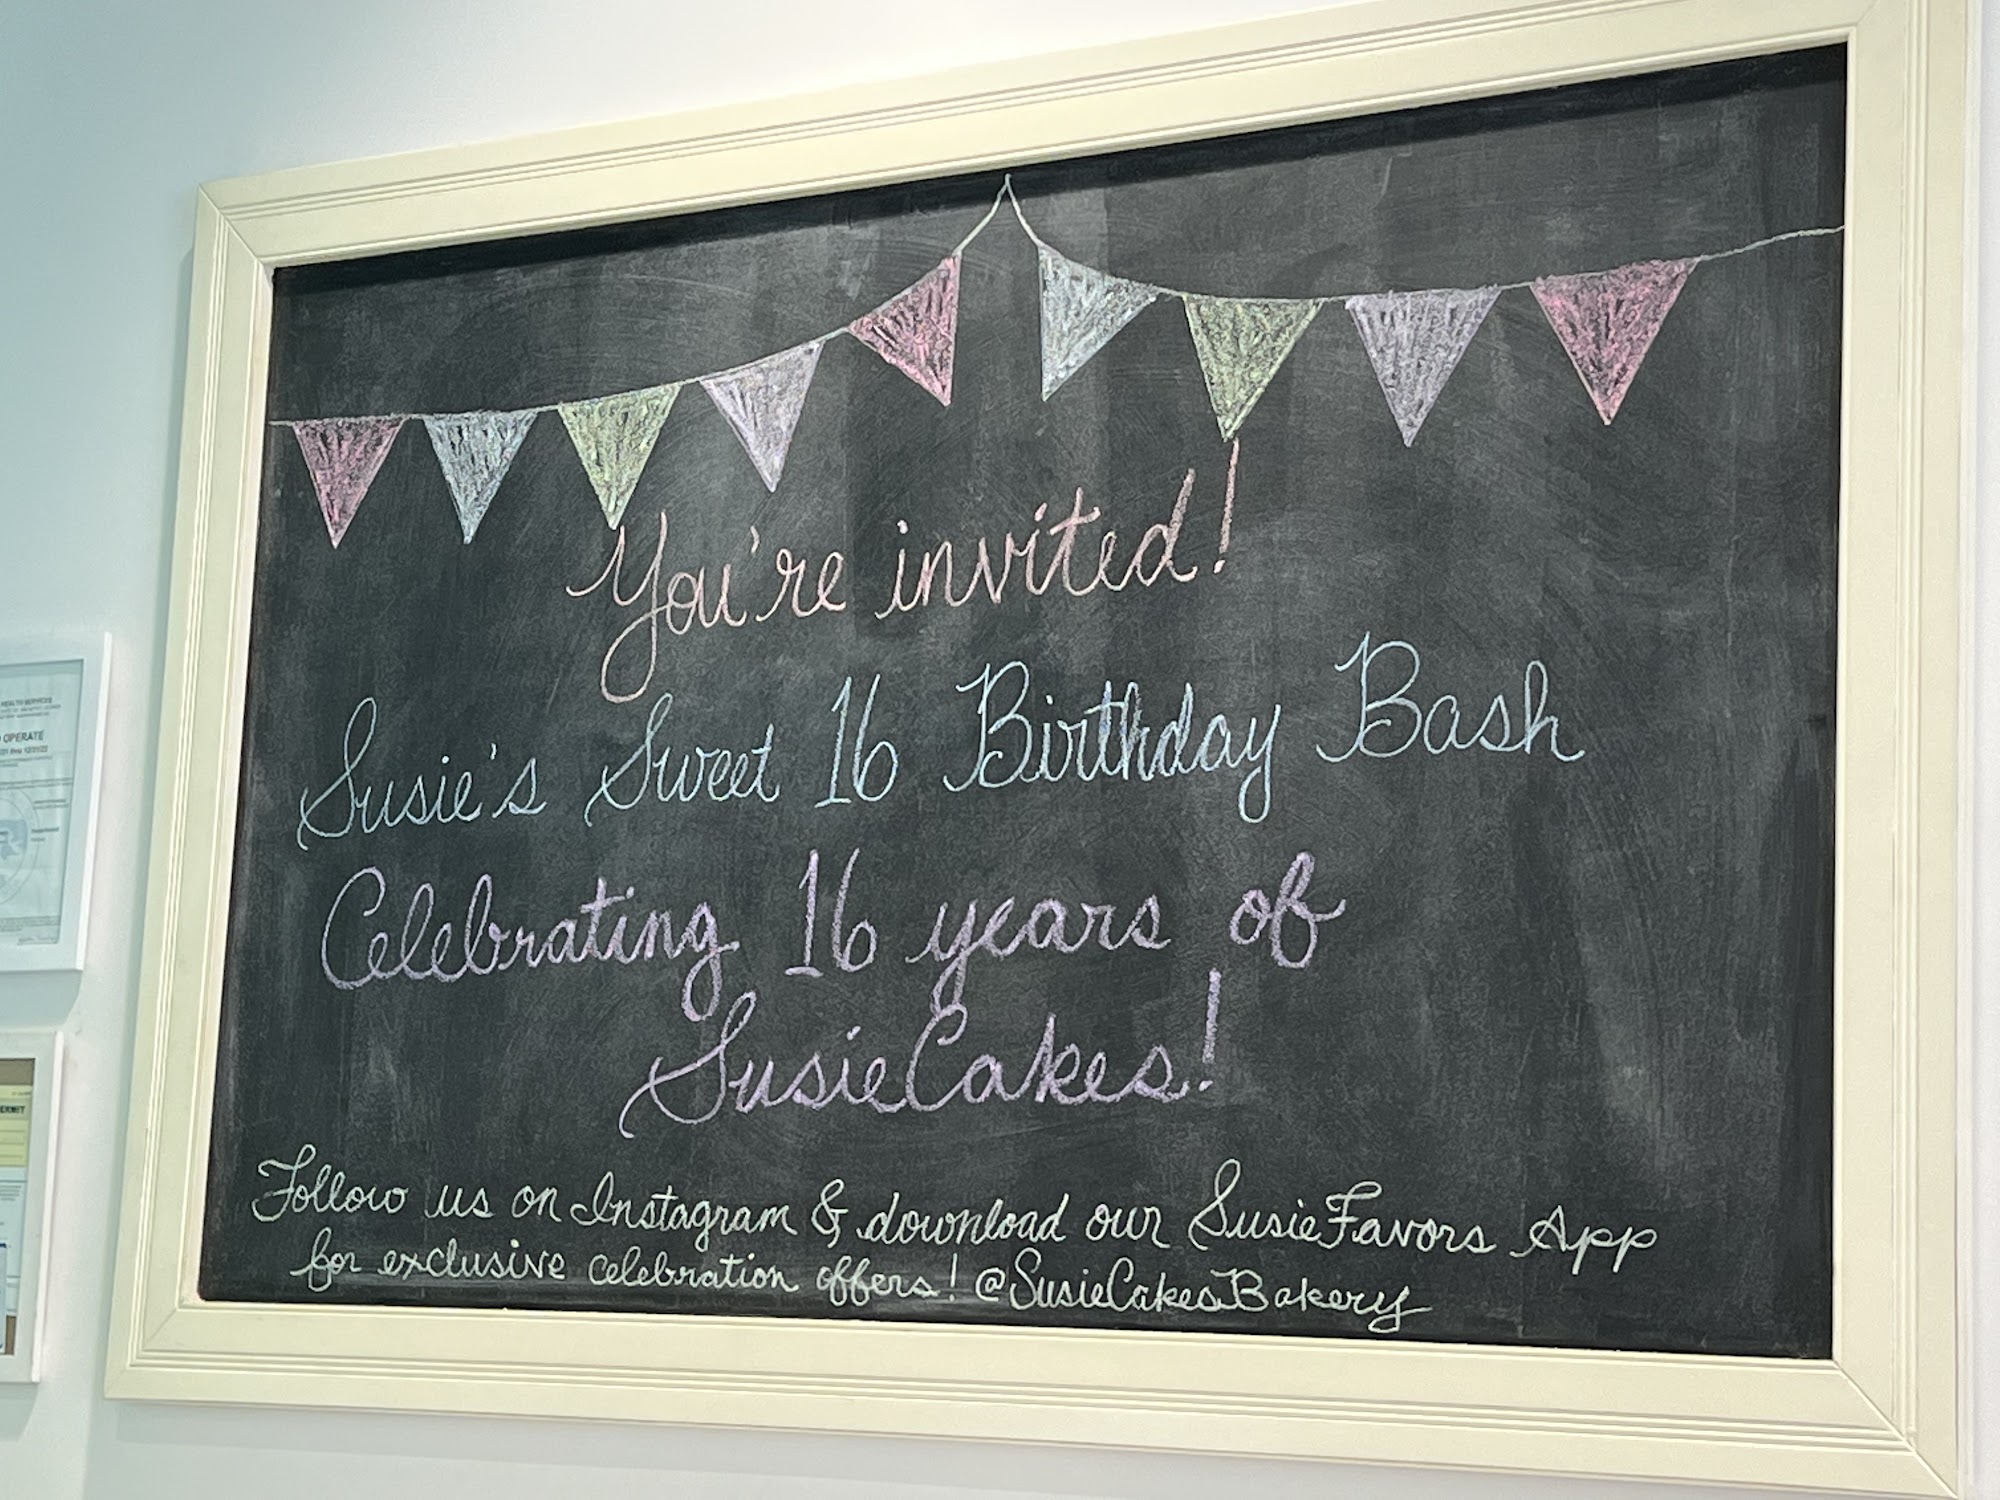 You're invited!
Susie's Sweet 16 Birthday Bash
Celebrating 16 years of
SusieCakes!
Follow us on Instagram & download our SusieFavors App
for exclusive celebration offers! @SusieCakesBakery
HEALTH SERVICES
OPERATE